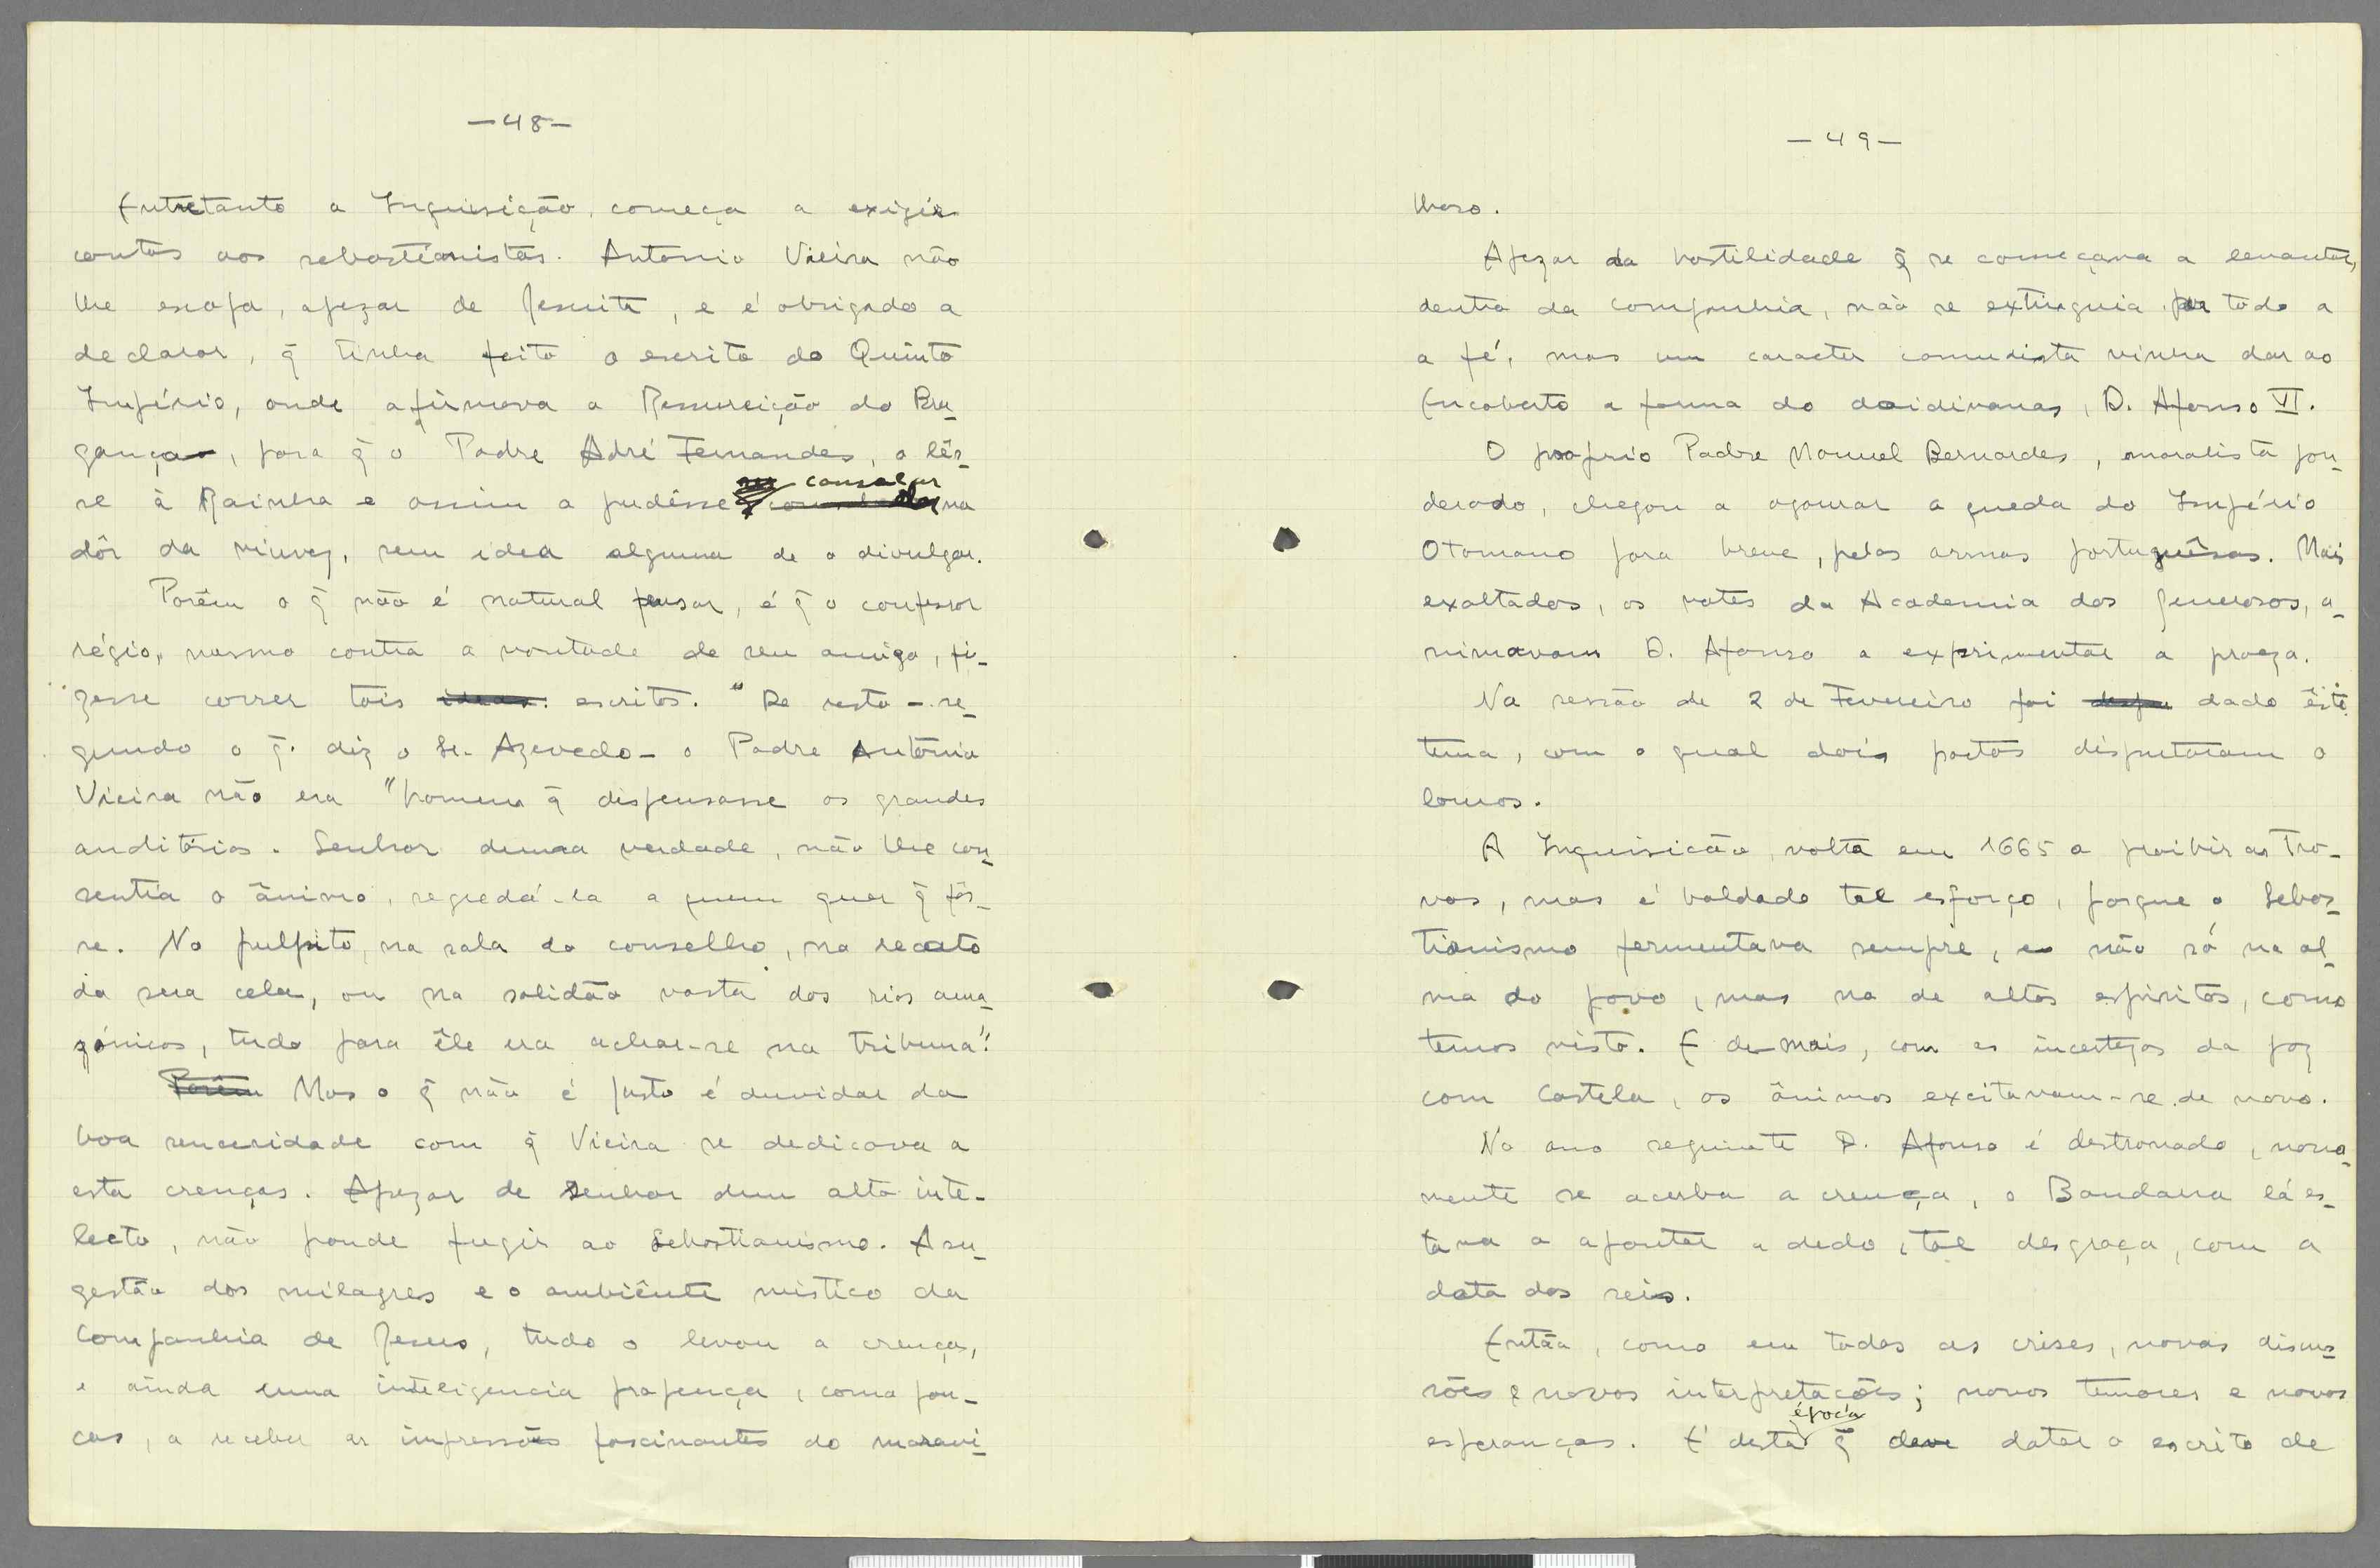 —48—
Entretanto a Inquisição, começa a exigir
contas aos sebastianistas. Antonio Vieira não
lhe escapa, apezar de Jesuita, e é obrigado a
declarar, q̃ tinha feito o escrito do Quinto
Império, onde afirmava a Ressureição do Bra-
gança, para q̃ o Padre Adré Fernandes, o lês-
se à Rainha e assim a pudésse consolar na
dôr da viuvez, sem idea alguma de o divulgar.
Porêm o q̃ não é natural pensar, é q̃ o confessor
régio, mesmo contra a vontade de seu amigo, fi-
zesse correr tais ideas escritos. "De resto - se-
gundo o q̃ diz o Sr. Azevedo - o Padre António
Vieira não era "homem q̃ dispensasse os grandes
auditórios. Senhor duma verdade, não lhe con-
sentia o ânimo, segredá-la a quem quer q̃ fôs-
se. No pulpito, na sala do conselho, no recato
da sua cela, ou na solidão vasta dos rios ama-
zónicos, tudo para êle era achar-se na tribuna".
Porêm Mas o q̃ não é justo é duvidar da
boa senceridade com q̃ Vieira se dedicava a
esta crenças. Apezar de Senhor dum alto inte-
lecto, não poude fugir ao Sebastianismo. A su-
gestão dos milagres e o ambiênte mistico da
Companhia de Jesus, tudo o levou a crença,
e ainda uma inteligencia propença, como pou-
cas, a receber as impressões fascinantes do maravi-
—49—
lhoso.
Apezar da hostilidade q̃ se começava a levantar,
dentro da companhia, não se extinguia por todo a
a fé, mas um caracter comedista vinha dar ao
Encoberto a forma do doidivanas, D. Afonso VI.
O proprio Padre Manuel Bernardes, moralista pon-
derado, chegou a agourar a queda do Império
Otomano para breve, pelas armas portuguêsas. Mais
exaltados, os vates da Academia dos Generosos, a-
nimavam D. Afonso a exprimentar a proeza.
Na sessão de 2 de Fevereiro foi dado êste
tema, com o qual dois poetas disputaram o
louros.
A Inquisicão, volta em 1665 a proibir as Tro-
vas, mas é baldado tal esforço, porque o Sebas-
tianismo fermentava sempre, e não só na al-
ma do povo, mas na de altos espiritos, como
temos visto. E de mais, com as incertezas da paz
com Castela, os ânimos excitavam-se de novo.
No ano seguinte D. Afonso é destronado, nova-
mente se acerba a crença, o Bandarra lá es-
tava a apontar a dedo, tal desgraça, com a
data dos seis.
Então, como em todas as crises, novas discus-
sões e novas interpretacões; novos temores e novas
esperanças. E' desta época q̃ deve datar o escrito de